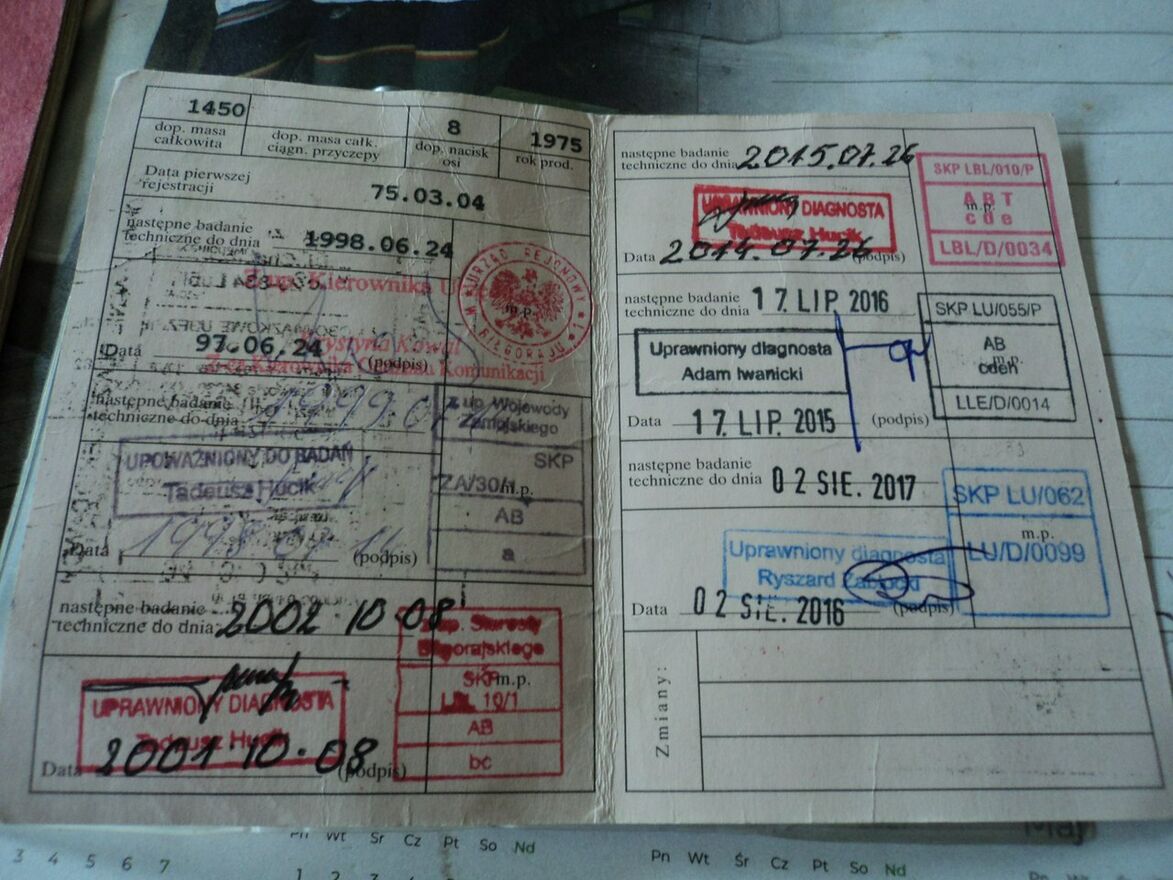 1450
dop. masa
całkowita
dop. masa całk.
ciągn. przyczepy
8
dop. nacisk
osi
1975
rok prod.
Data pierwszej
rejestracji
75.03.04
następne badanie
techniczne do dnia
1998.06.24
Kierownika
URZĄD REJONOWY
W BIŁGORAJU
m.p.
Krystyna Kowal
Komunikacji
Data
97.06.24
(podpis)
następne badanie
techniczne do dnia
1999.07
z up. Wojewody
Zamojskiego
SKP
ZA/30/
m.p.
AB
a
UPOWAŻNIONY DO BADAŃ
Tadeusz Hucik
Data
1998 07
(podpis)
następne badanie
techniczne do dnia
2002.10.08
z up. Starosty
Biłgorajskiego
SKP
m.p.
LBL 10/1
AB
bc
UPRAWNIONY DIAGNOSTA
Tadeusz Hucik
Data
2001.10.08
(podpis)
następne badanie
techniczne do dnia
2015.07.26
SKP LBL/010/P
ABT
m.p.
cde
LBL/D/0034
UPRAWNIONY DIAGNOSTA
Tadeusz Hucik
Data
2014.07.26
(podpis)
następne badanie
techniczne do dnia
17. LIP. 2016
SKP LU/055/P
AB
m.p.
cdeh
LLE/D/0014
Uprawniony diagnosta
Adam Iwanicki
Data
17. LIP. 2015
(podpis)
następne badanie
techniczne do dnia
02 SIE. 2017
SKP LU/062
m.p.
LU/D/0099
Uprawniony diagnosta
Ryszard
Data
02 SIE. 2016
(podpis)
Zmiany:
Maj
Pn Wt Śr Cz Pt So Nd
3 4 5 6 7
1 2 3 4
Pn Wt Śr Cz Pt So Nd
Pn